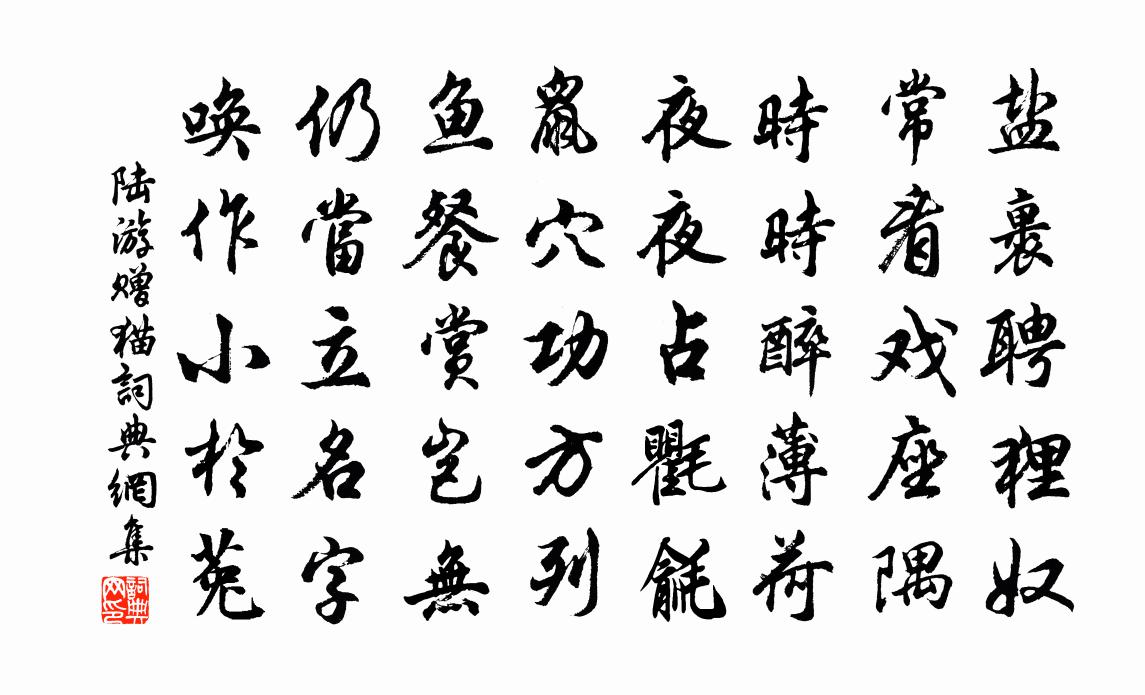 盐裹聘狸奴
常看戏座隅
時時醉薄荷
夜夜占氍毹
鼠穴功方列
鱼餐賞岂無
仍當立名字
唤作小於菟
陆游赠猫詞典網集
詞典网印